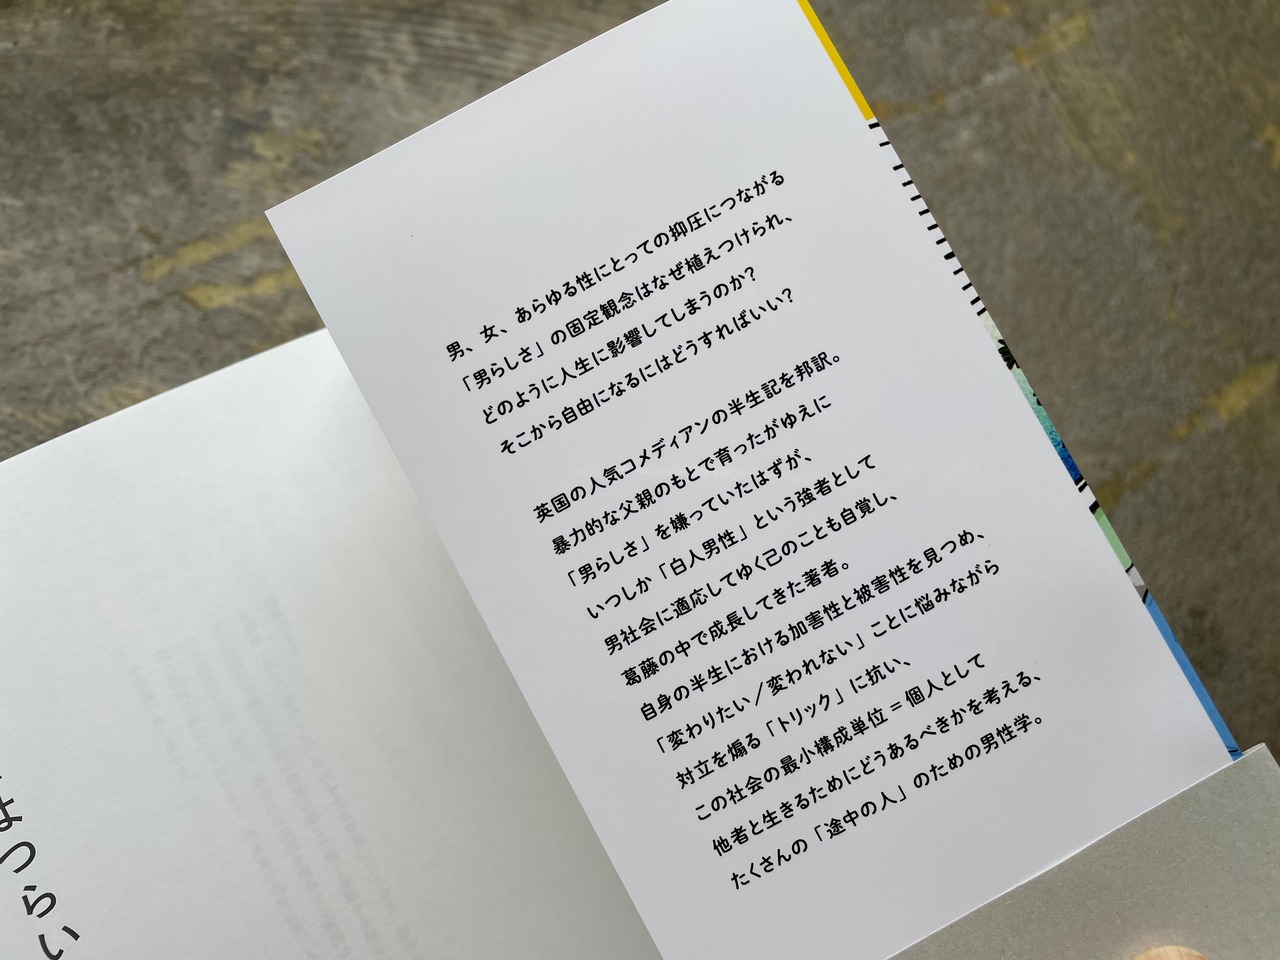 男、女、あらゆる性にとっての抑圧につながる
「男らしさ」の固定観念はなぜ植えつけられ、
どのように人生に影響してしまうのか？
そこから自由になるにはどうすればいい？
英国の人気コメディアンの半生記を邦訳。
暴力的な父親のもとで育ったがゆえに
「男らしさ」を嫌っていたはずが、
いつしか「白人男性」という強者として
男社会に適応してゆく己のことも自覚し、
葛藤の中で成長してきた著者。
自身の半生における加害性と被害性を見つめ、
「変わりたい／変われない」ことに悩みながら
対立を煽る「トリック」に抗い、
この社会の最小構成単位＝個人として
他者と生きるためにどうあるべきかを考える、
たくさんの「途中の人」のための男性学。
はつらい